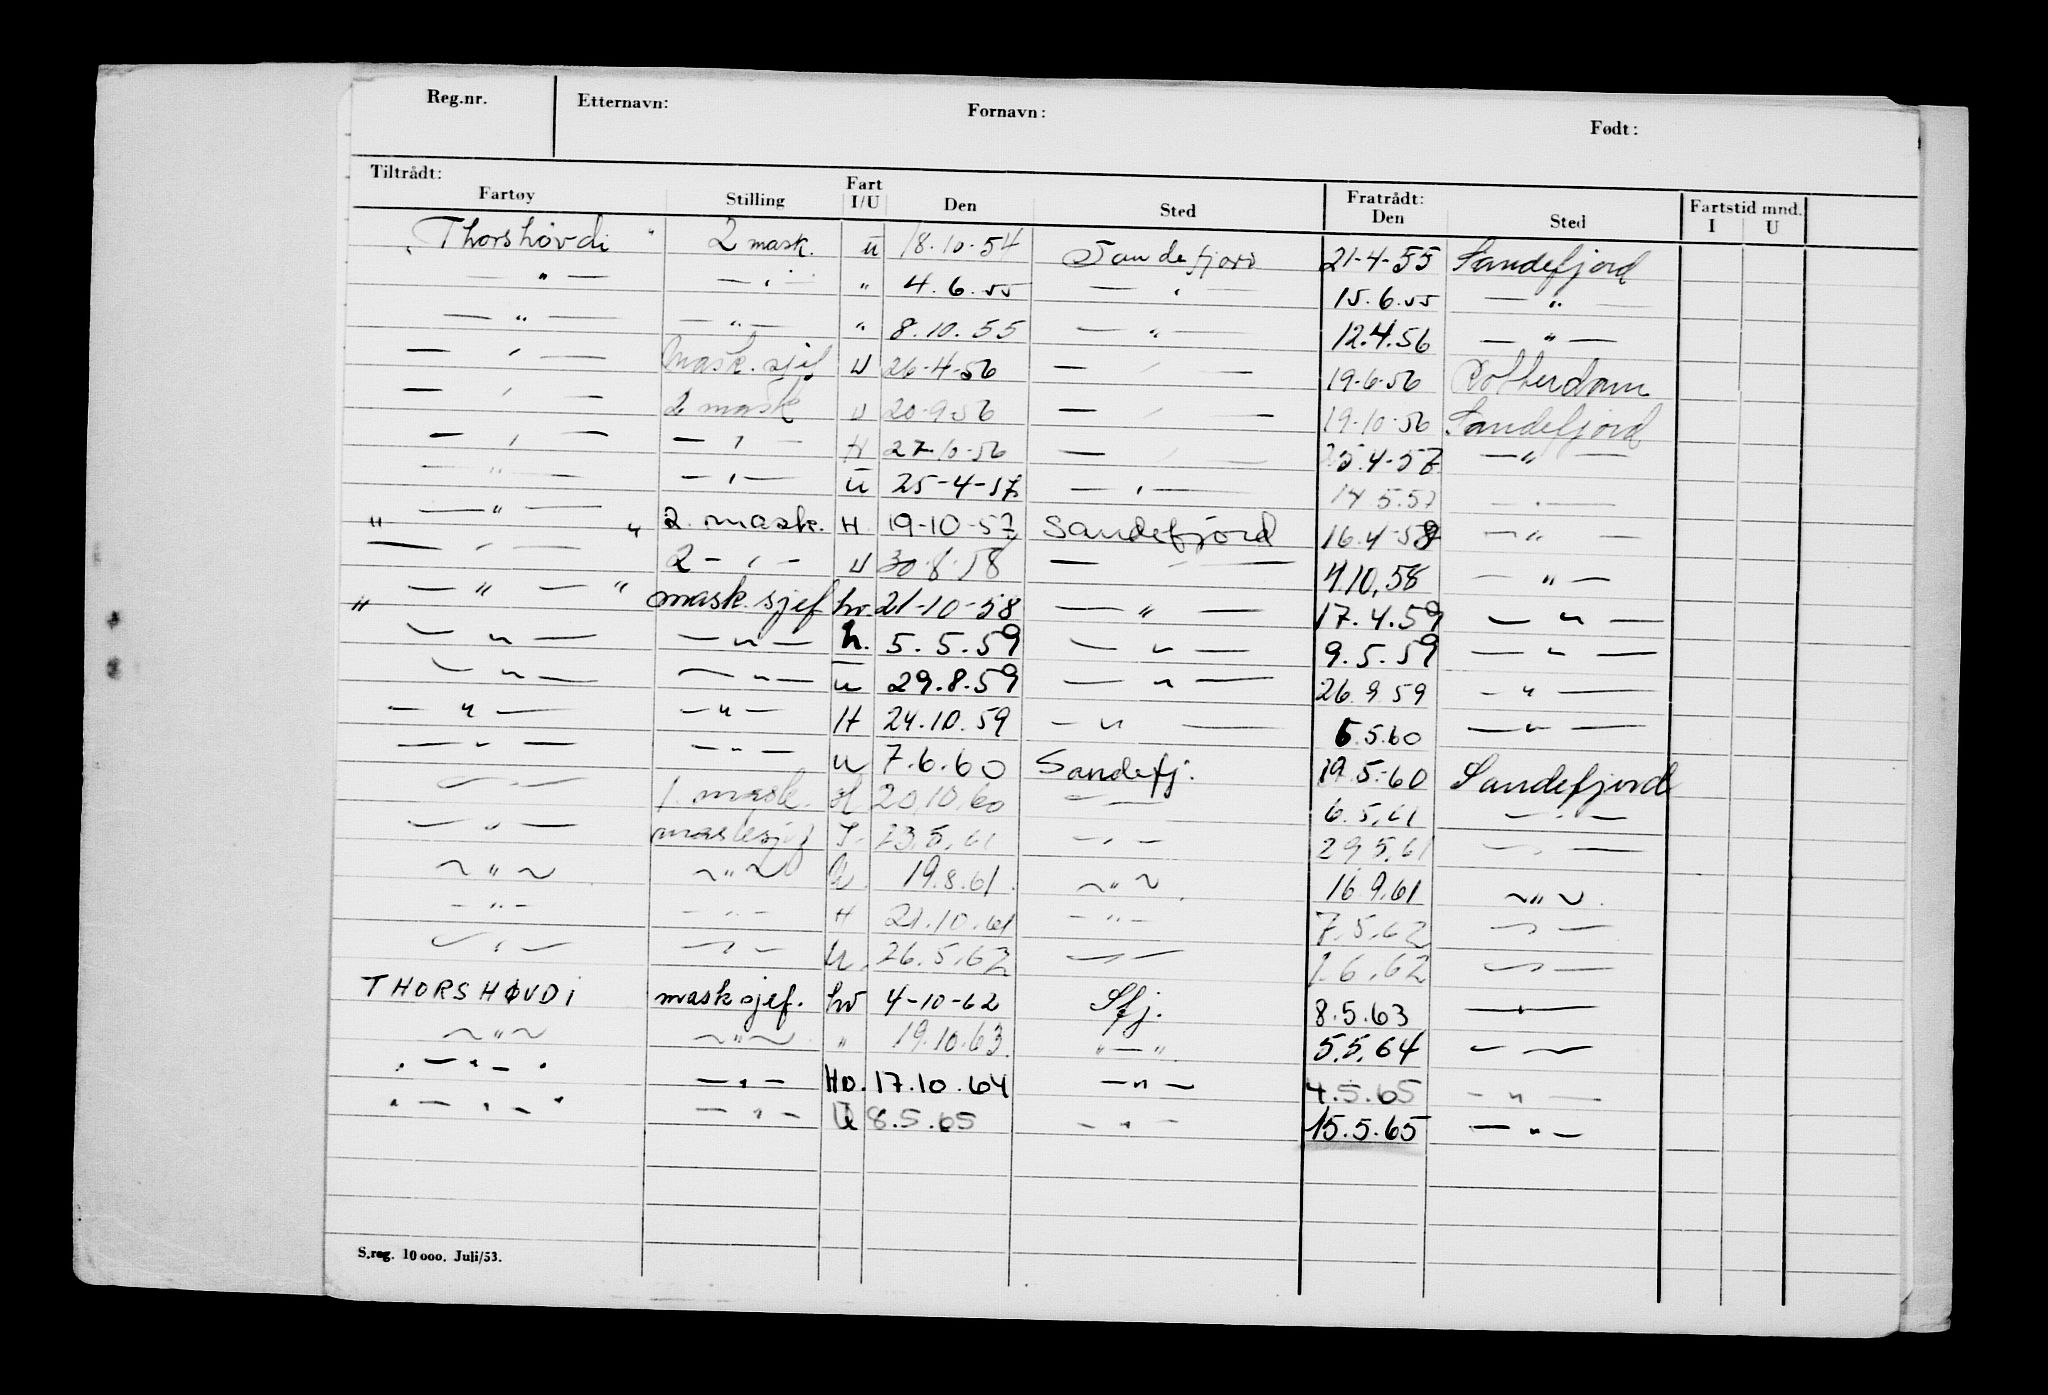 Reg.nr. Etternavn: Fornavn: Født:
Tiltrådt: Fratrådt:
Fartøy Stilling Fart I/U Den Sted Den Sted Fartstid mnd. I U
"Thorshøvdi" 2 mask. u 18.10-54 Sandefjord 21-4-55 Sandefjord
— " — — " — " 4.6.55 — " — 15.6.55 — " —
— " — — " — " 8.10.55 — " — 12.4.56 — " —
— " — Mask.sjef U 26-4-56 — " — 19-6-56 Rotterdam
— " — 2 mask U 20-9-56 — " — 19-10-56 Sandefjord
— " — — " — H 27-10-56 — " — 25.4-57 — " —
— " — — " — u 25-4-57 — " — 14 5.57 — " —
" — " — " 2. mask. H. 19-10-57 Sandefjord 16.4-58 — " —
— " — 2 — " — U 30.8.58 — " — 4.10.58 — " —
" — " — " mask.sjef hv. 21-10-58 — " — 17.4.59 — " —
— " — — " — h. 5.5.59 — " — 9.5.59 — " —
— " — — " — u 29.8.59 — " — 26.9.59 — " —
— " — — " — H 24.10.59 — " — 5.60 — " —
— " — — " — u 7.6.60 Sandefj. 19.5.-60 Sandefjord
— " — 1. mask. H 20.10.60 — " — 6.5.61 — " —
— " — masksjef 23.5.61 — " — 29.5.61 — " —
— " — — " — U. 19.8.61. — " — 16.9.61 — " —
— " — — " — H 21.10.61 — " — 7.5.62 — " —
— " — — " — U. 26.5.62 — " — 6.62 — " —
THORSHØVDI masksjef. hv 4-10-62 Sfj. 8.5.63 — " —
— " — — " — " 19.10.63. " — " 5.5.64 — " —
" — " — " — " — HO. 17.10.64 — " — 4.5.65 — " —
" — " — " — " — U 8.5.65 — " — 15.5.65 — " —
S.reg. 10 000. Juli/53.